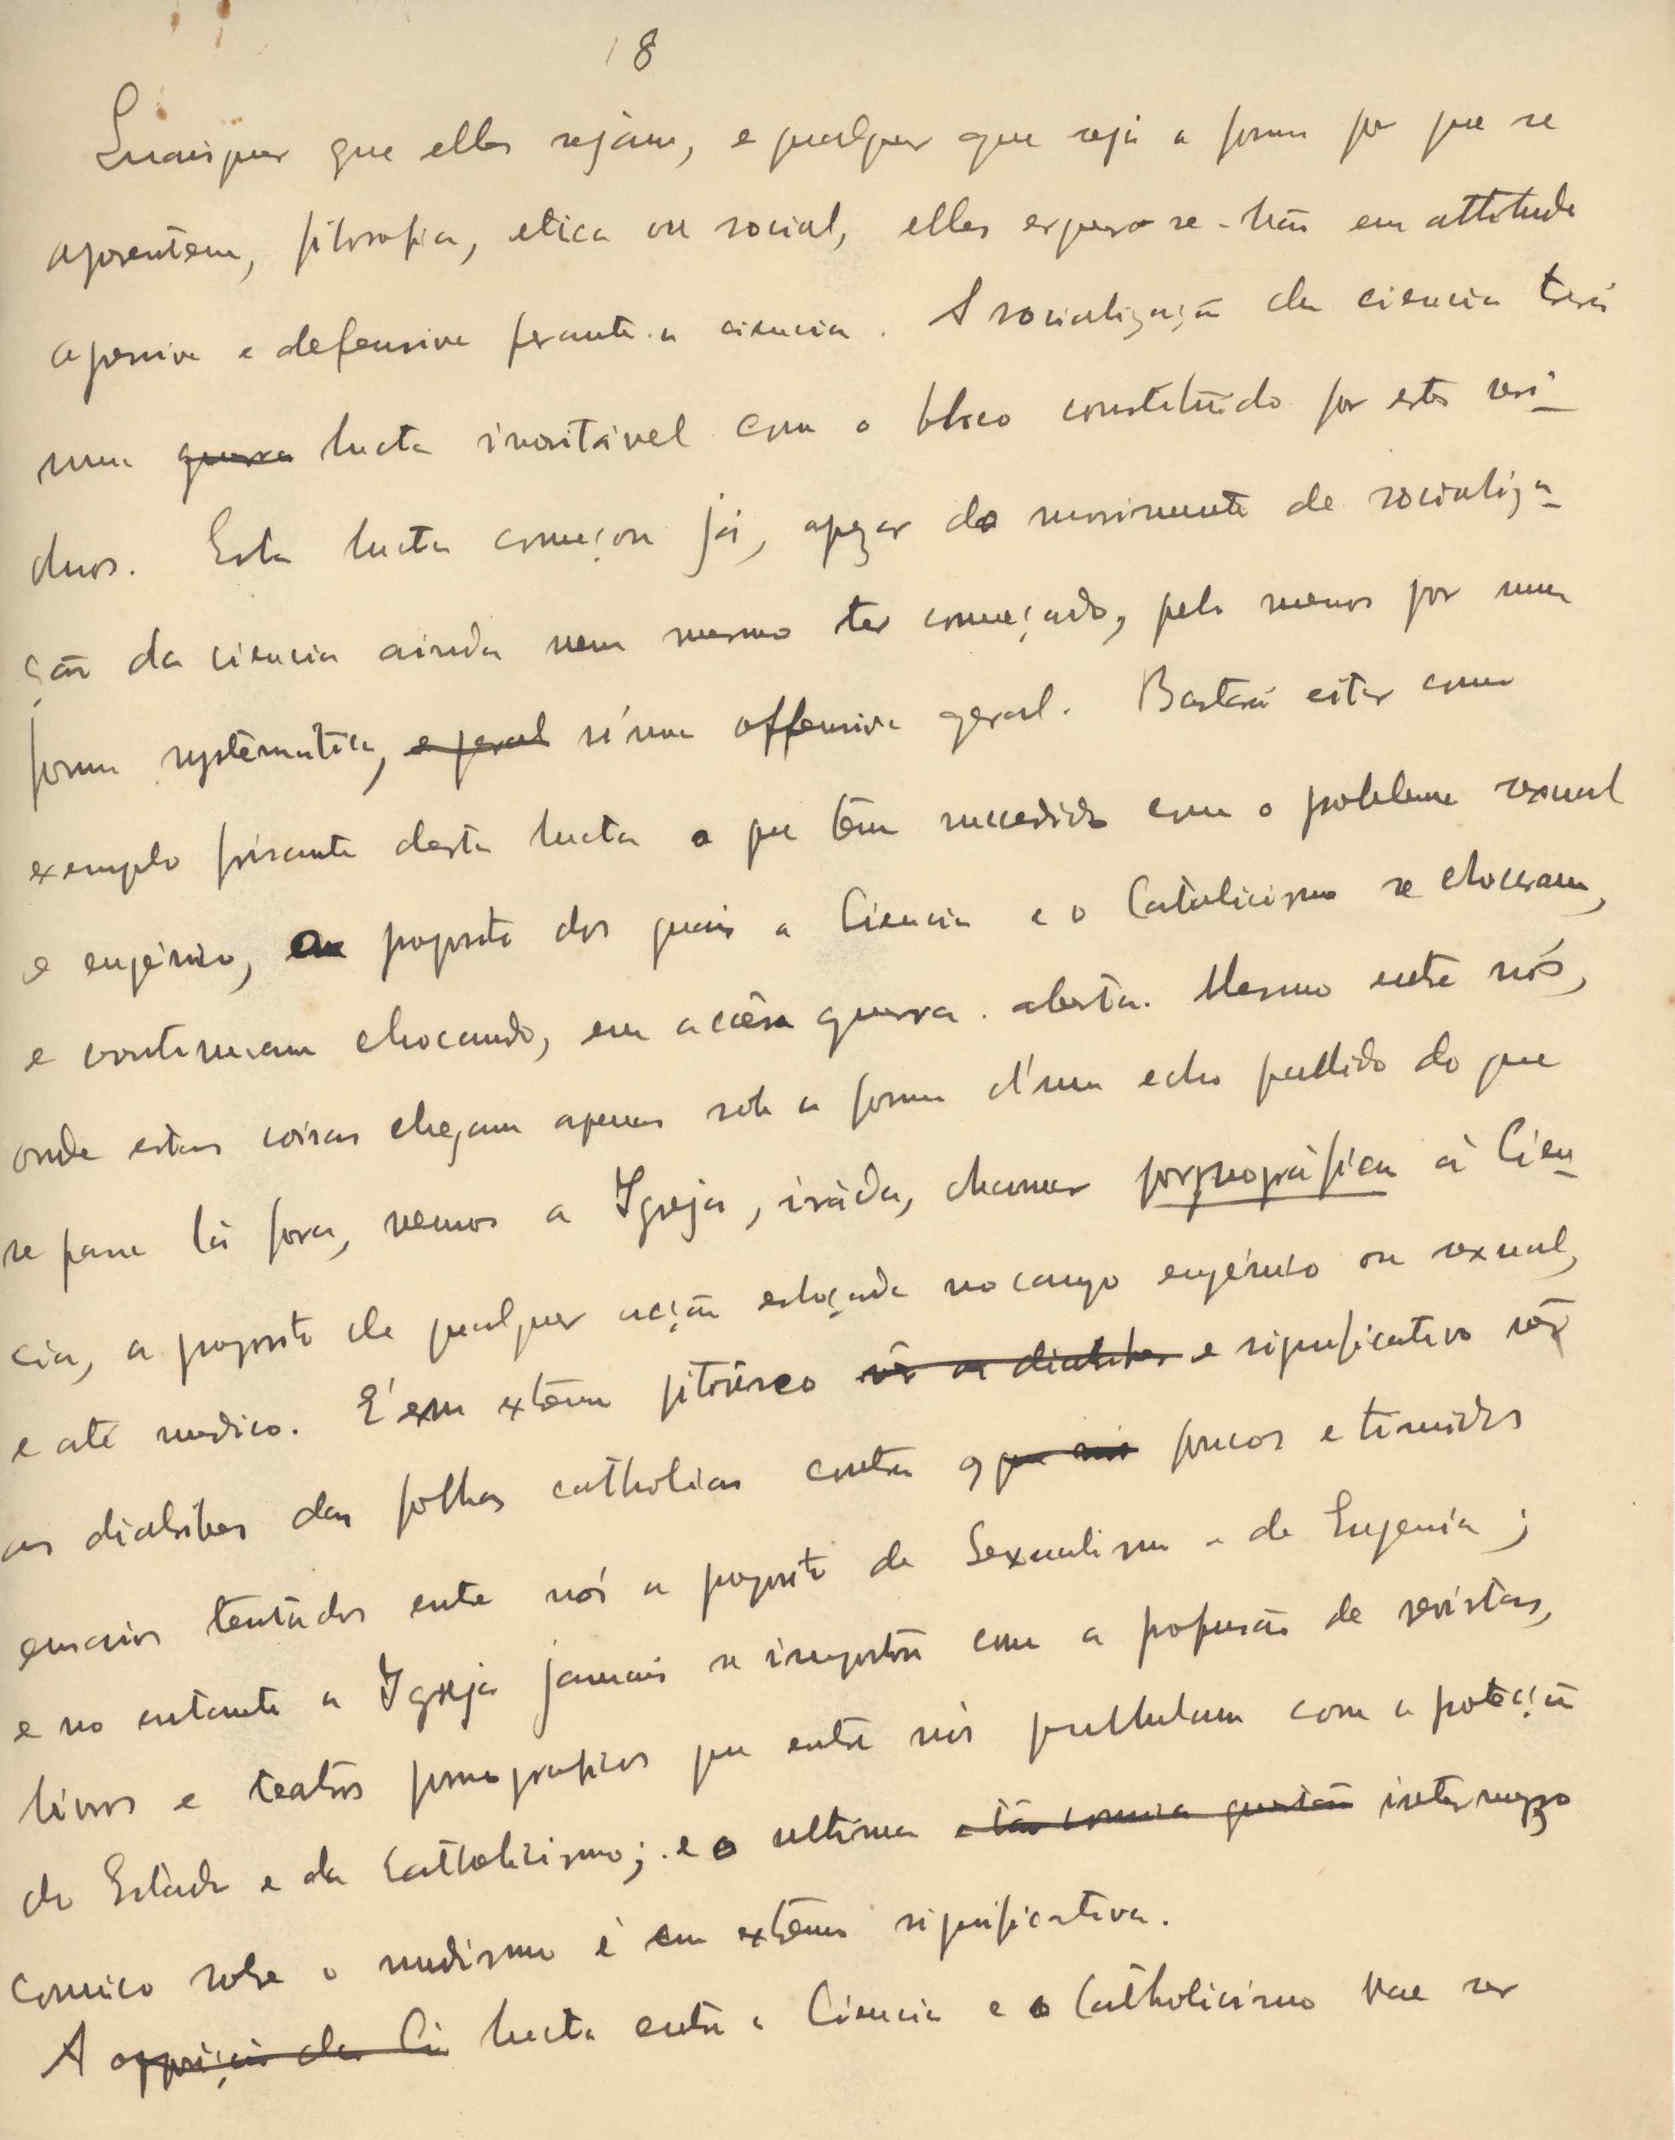 8
Quaisquer que elles sejam, e qualquer que seja a forma por que se
apresentem, filosofica, etica ou social, elles erguer-se-hão em attitude
agressiva e defensiva perante a ciencia. A socialização da ciencia terá
uma guerra lucta inevitável com o bloco constituido por estes resi-
duos. Esta lucta começou já, apezar do movimento de socializa-
ção da ciencia ainda nem mesmo ter começado, pelo menos por uma
forma systematica, e geral n'uma offensiva geral. Bastará citar como
exemplo frisante desta lucta o que tem succedido com o problema sexual
e eugénico, a proposito dos quais a Ciencia e o Catolicismo se chocaram,
e continuam chocando, em acêsa guerra aberta. Mesmo entre nós,
onde estas coisas chegam apenas sob a forma d'um echo pallido do que
se passa lá fora, vemos a Igreja, iráda, chamar pornográfica á Cien-
cia, a proposito de qualquer acção esboçada no campo eugénico ou sexual,
e até medico. É em extremo pitoresco vêr as diatribes e significativo vêr
as diatribes das folhas catholicas contra os poucos e timidos
ensaios tentados entre nós a proposito de Sexualismo e de Eugenia;
e no entanto a Igreja jamais se importou com a profusão de revistas,
livros e teatros pornograficos que entre nós pullulam com a proteção
do Estado e do Catholicismo; e o ultimo e tão comica questão intermezzo
comico sobre o nudismo é em extremo significativo.
A opposição da Ci lucta entre a Ciencia e o Catholicismo vae ser